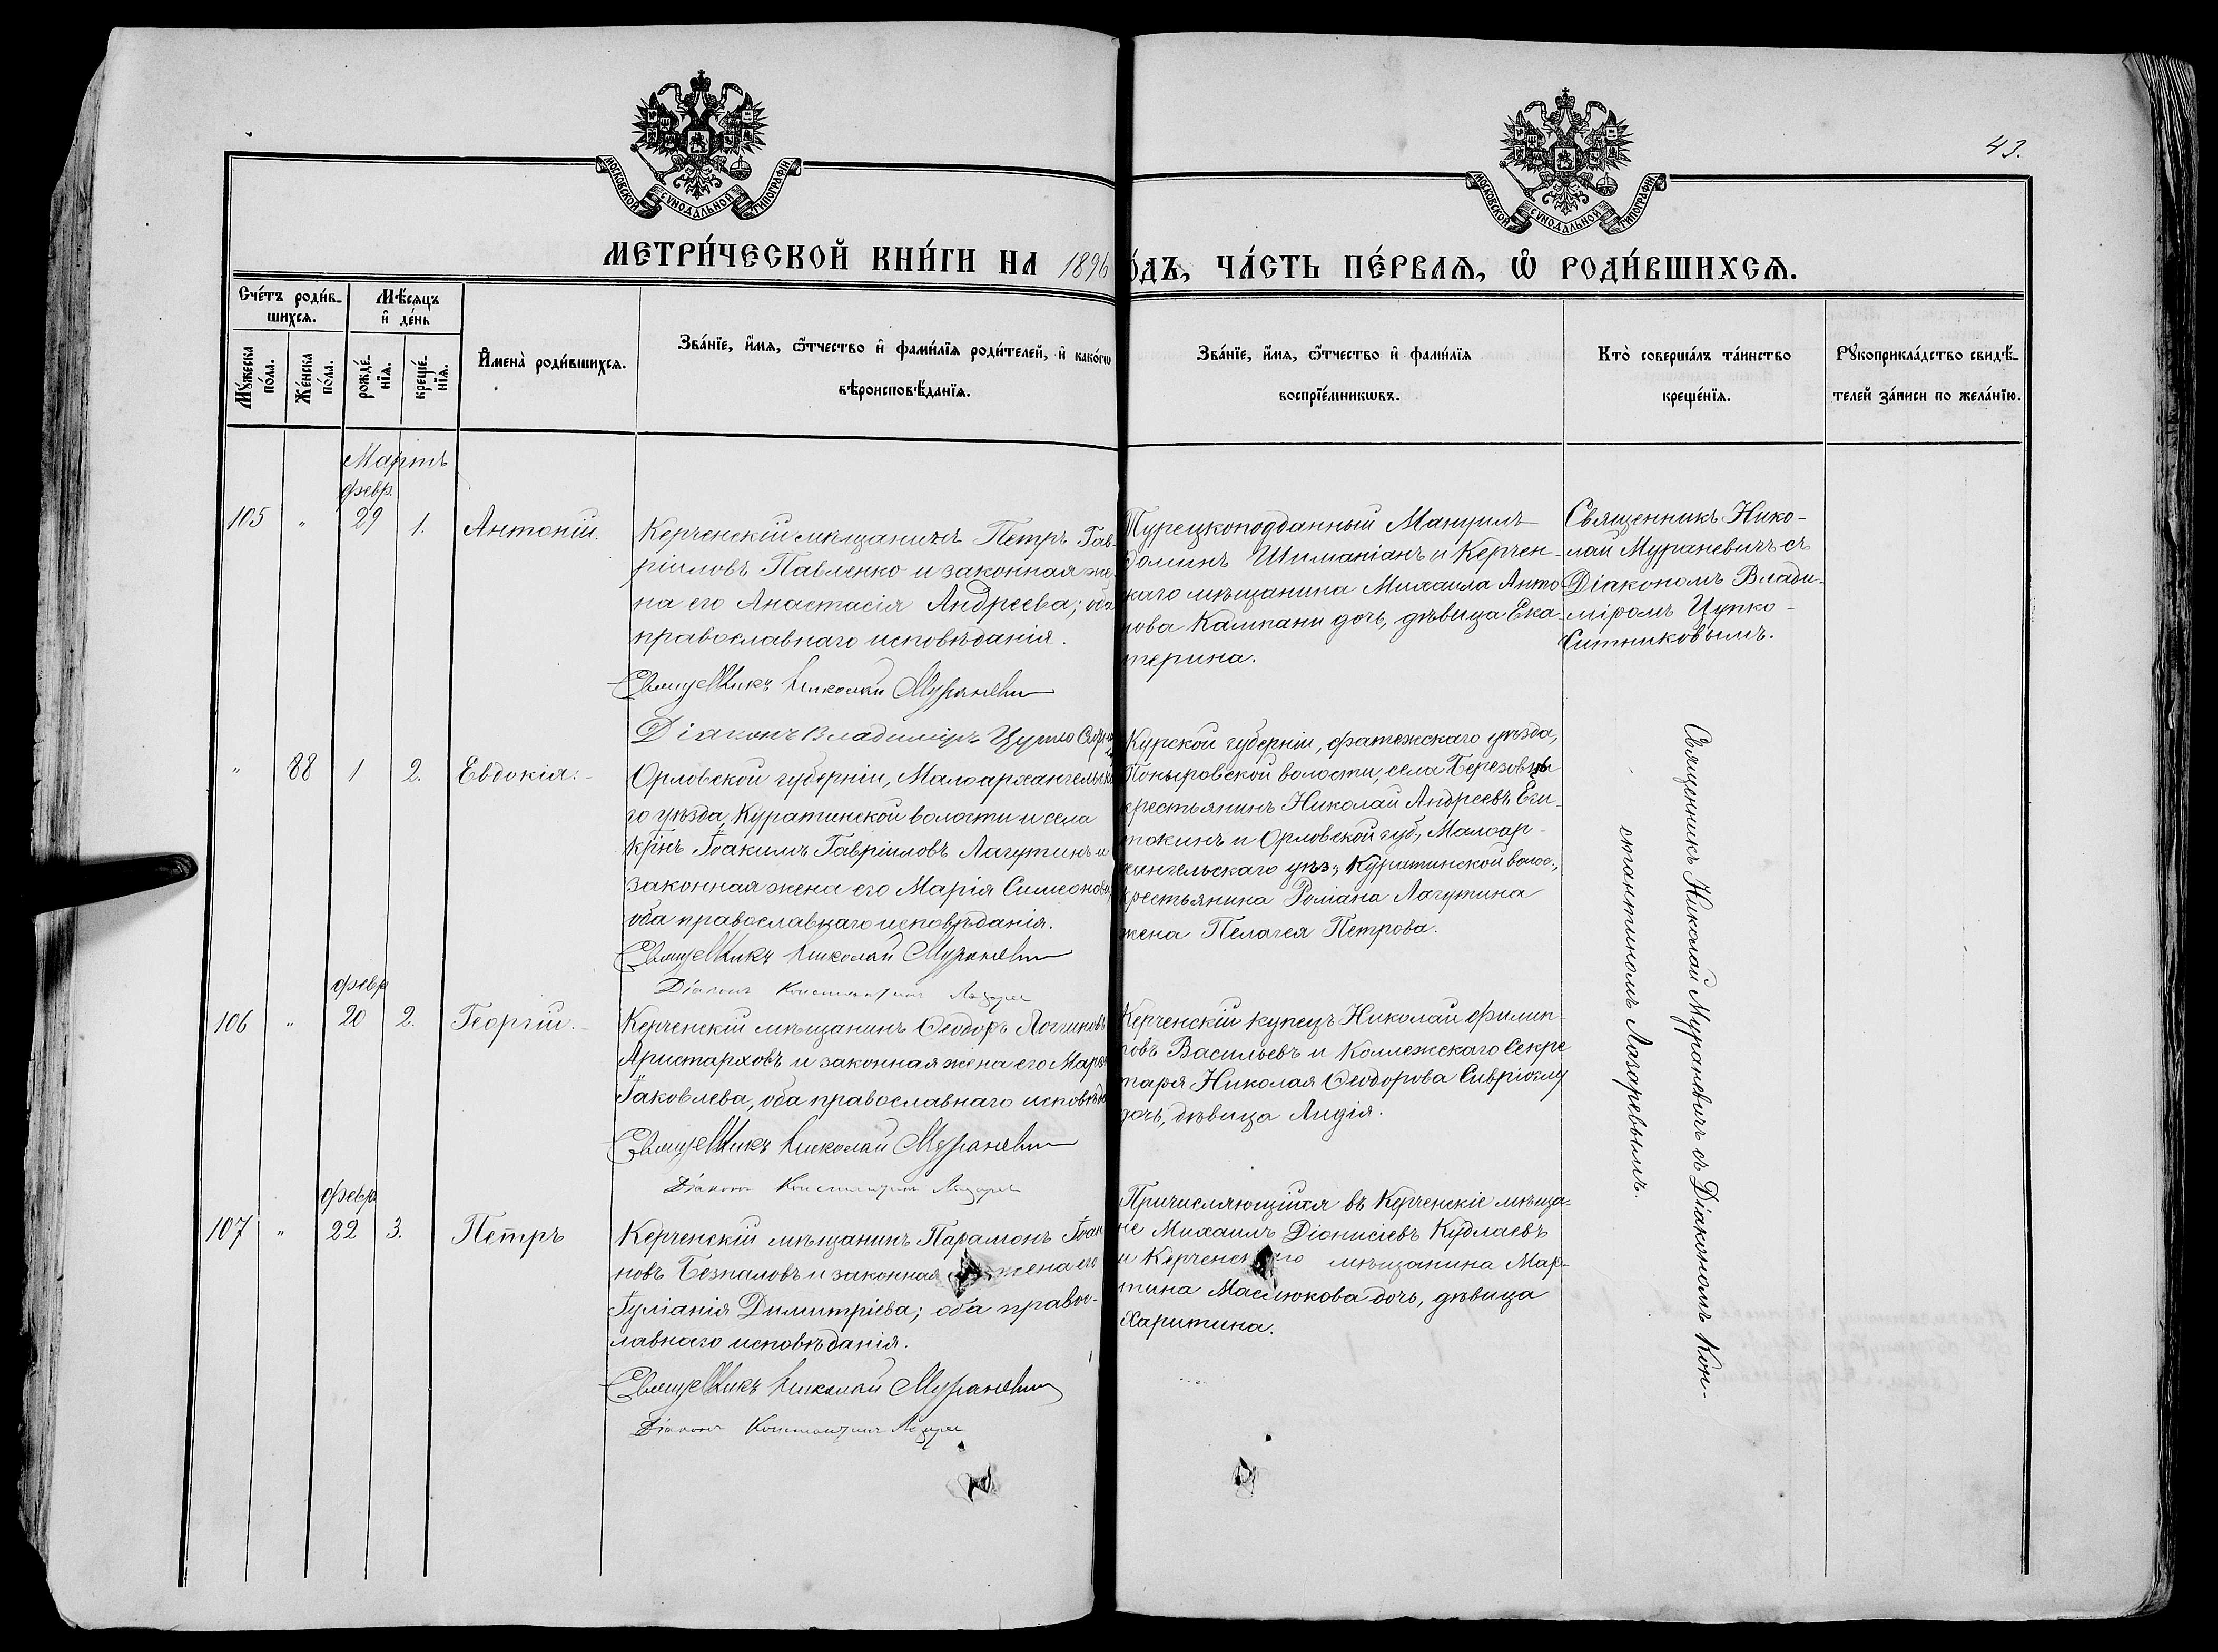 43.
МОСКОВСКОЙ СѴНОДАЛЬНОЙ ТИПОГРАФІИ
МОСКОВСКОЙ СѴНОДАЛЬНОЙ ТИПОГРАФІИ
МЕТРИ́ЧЕСКОЙ КНИ́ГИ НА 1896
О́ДЪ, ЧА́СТЬ ПЕ́РВАѦ, Ѽ РОДИ́ВШИХСѦ.
Сче́тъ роди́в-
шихсѧ.
Мѣ́сѧцъ
и҆ де́нь
Мꙋ́жеска
по́ла.
Же́нска
по́ла.
рожде́-
нїѧ.
креще́-
нїѧ.
И҆мена̀ роди́вшихсѧ.
Зва́нїе, и҆́мѧ, ѻ҆́тчество и҆ фами́лїѧ роди́телей, и҆ како́гѡ
вѣроисповѣ́данїѧ.
Зва́нїе, и҆́мѧ, ѻ҆́тчество и҆ фами́лїѧ
воспрїе́мникѡвъ.
Кто̀ соверша́лъ та́инство
креще́нїѧ.
Рꙋкоприкла́дство свидѣ́-
телей за́писи по жела́нїю.
Мартъ
февр
105 " 29 1. Антоній.
Керченскій мѣщанинъ Петръ Гав-
ріиловъ Павленко и законная же-
на его Анастасія Андреева; оба
православнаго исповѣданія.
Священникъ Николай Мураневич
Діаконъ Владиміръ Цупко
Турецкоподданный Мануилъ
Шиманіанъ и Керчен-
каго мѣщанина Михаила Анто-
нова Кампани дочь, дѣвица Ека-
терина.
Священникъ Нико-
лай Мураневичъ съ
Діакономъ Влади-
міромъ Цупко-
Ситниковымъ.
" 88 1 2. Евдокія.
Орловской губерніи, Малоархангельска
го уѣзда, Куратинской волости и села
крнъ Іоакимъ Гавріиловъ Лагутинъ и
законная жена его Марія Симеонова,
оба православнаго исповѣданія.
Священникъ Николай Мураневич
Діаконъ Константинъ Лазарев
Курской губерніи, фатежскаго уѣзда,
Поныровской волости, села Березовцы
крестьянинъ Николай Андреевъ Еги-
токинъ и Орловской губ., Малоар-
хангельскаго уѣз., Куратинской волос.,
крестьянина Романа Лагутина
жена Пелагея Петрова.
Священникъ Николай Мураневичъ съ Діакономъ Кон-
стантиномъ Лазаревымъ.
февр
106 " 20 2. Георгій.
Керченскій мѣщанинъ Ѳеодоръ Логгиновъ
Аристарховъ и законная жена его Марія
Іаковлева, оба православнаго исповѣд
Священникъ Николай Мураневич
Діаконъ Константинъ Лазарев
Керченскій купецъ Николай Филип-
повъ Васильевъ и Коллежскаго Секре
таря Николая Ѳеодорова Сивріоглу
дочь, дѣвица Лидія.
февр
107 " 22 3. Петръ
Керченскій мѣщанинъ Парамонъ Іоан
новъ Безпаловъ и законная жена его
Іуліанія Димитріева; оба право-
славнаго исповѣданія.
Священникъ Николай Мураневич
Діаконъ Константинъ Лазарев
Причисляющійся въ Керченскіе мѣща-
не Михаилъ Діонисіевъ Кудлаевъ
и Керченскаго мѣщанина Мар-
тина Маслюкова дочь, дѣвица
Харитина.